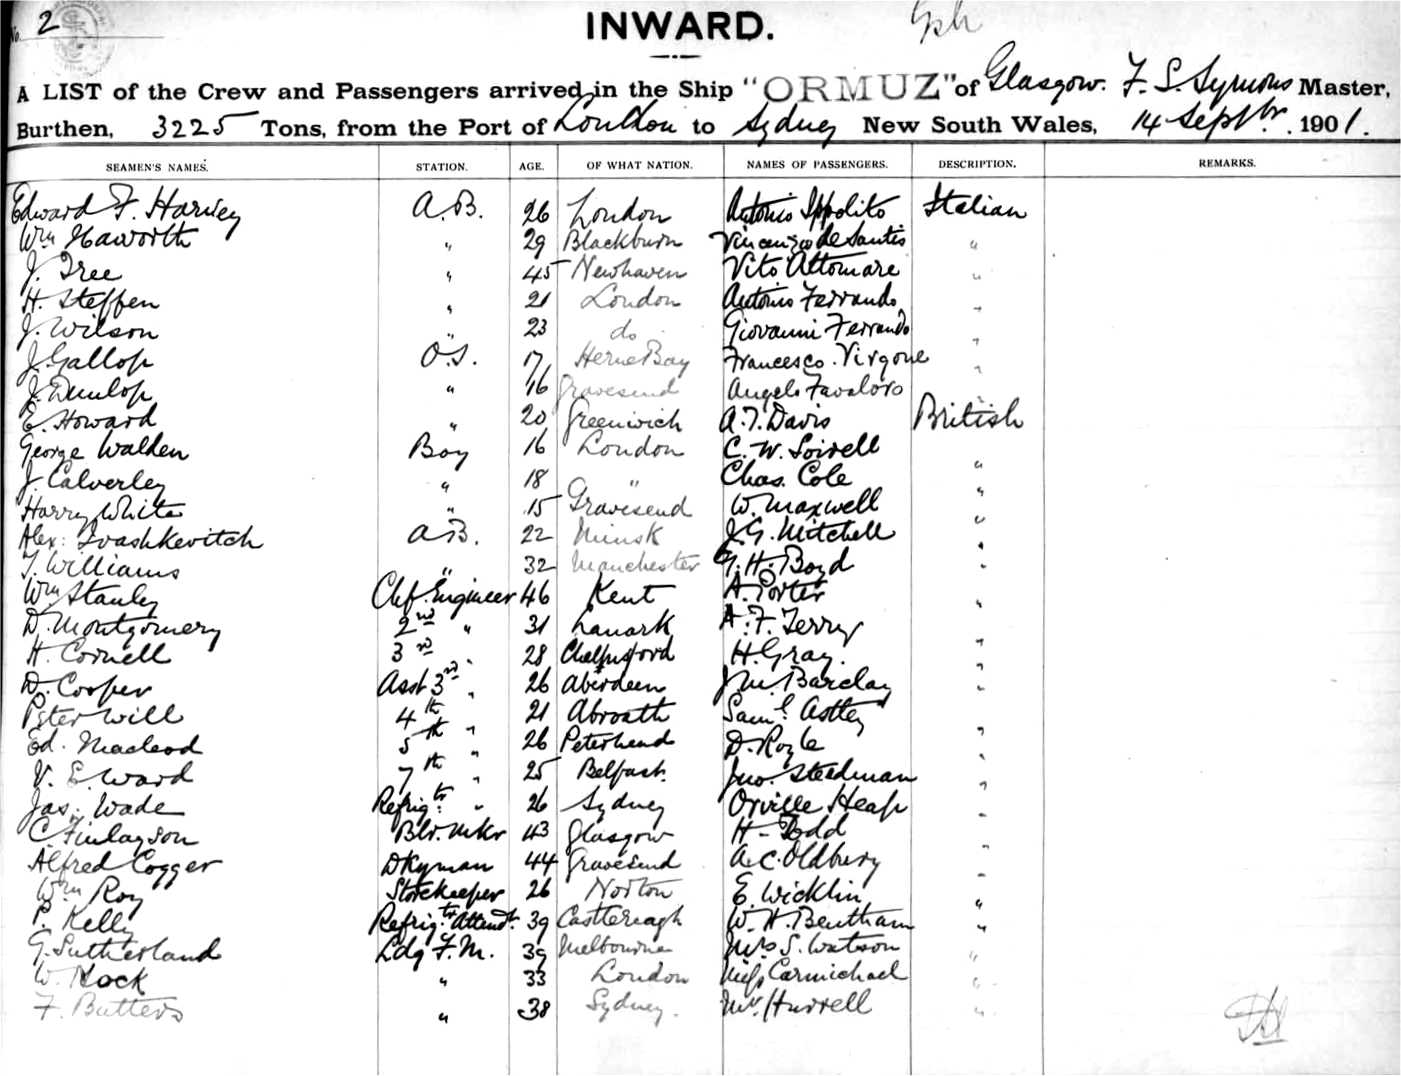 No. 2
INWARD.
A LIST of the Crew and Passengers arrived in the Ship "ORMUZ" of Glasgow. F. S. Symons Master,
Burthen, 3225 Tons, from the Port of London to Sydney New South Wales, 14 Septbr. 1901.
SEAMEN'S NAMES. STATION. AGE. OF WHAT NATION. NAMES OF PASSENGERS. DESCRIPTION. REMARKS.
Edward F. Harvey A.B. 26 London Antonio Ippolito Italian
Wm Haworth " 29 Blackburn Vincenzo de Santis "
J. Tree " 45 Newhaven Vito Attomare "
H. Steffen " 21 London Antonio Ferrando "
J. Wilson " 23 do Giovanni Ferrando "
J. Gallop O.S. 17 Herne Bay Francesco Virgone "
J. Dunlop " 16 Gravesend Angelo Favaloro "
E. Howard " 20 Greenwich A. T. Davis British
George Walden Boy 16 London C. W. "
J. Calverley " 18 " Chas. Cole "
Harry White " 15 Gravesend W. Maxwell "
Alex: Ivashkevitch A.B. 22 Minsk J. G. Mitchell "
T. Williams " 32 Manchester G. H. Boyd "
Wm Stanley Chf. Engineer 46 Kent A. Porter "
D. Montgomery 2nd " 31 Lanark A. F. Terry "
H. Cornell 3rd " 28 Chelmsford H. Gray. "
D. Cooper Asst 3rd " 26 Aberdeen Jn. M. Barclay "
Peter Will 4th " 21 Abroath Saml. Astley "
Ed. Macleod 5th " 26 Peterhead D. Royle "
V. E. Ward 7th " 25 Belfast. Jno. Steedman "
Jas. Wade Refrigtr. " 26 Sydney Orville Heap "
C. Finlayson Blr. Mkr 43 Glasgow H. Todd "
Alfred Cogger Dkyman 44 Gravesend A. C. Oldbury "
Wm Roy Storekeeper 26 Norton E. Wicklin "
P. Kelly Refrigtr. Attendt. 39 Castlereagh W. H. Bentham "
G. Sutherland Ldg F.M. 39 Melbourne Mrs S. Watson "
W. Nock " 33 London Miss Carmichael "
F. Butters " 38 Sydney. Mr. Hurrell "